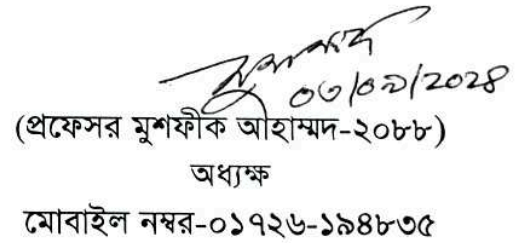 ০৩/০৯/2028
(প্রফেসর মুশফীক আহাম্মদ-২০৮৮)
অধ্যক্ষ
মোবাইল নম্বর-০১৭২৬-১৯৪৮৮৩৫